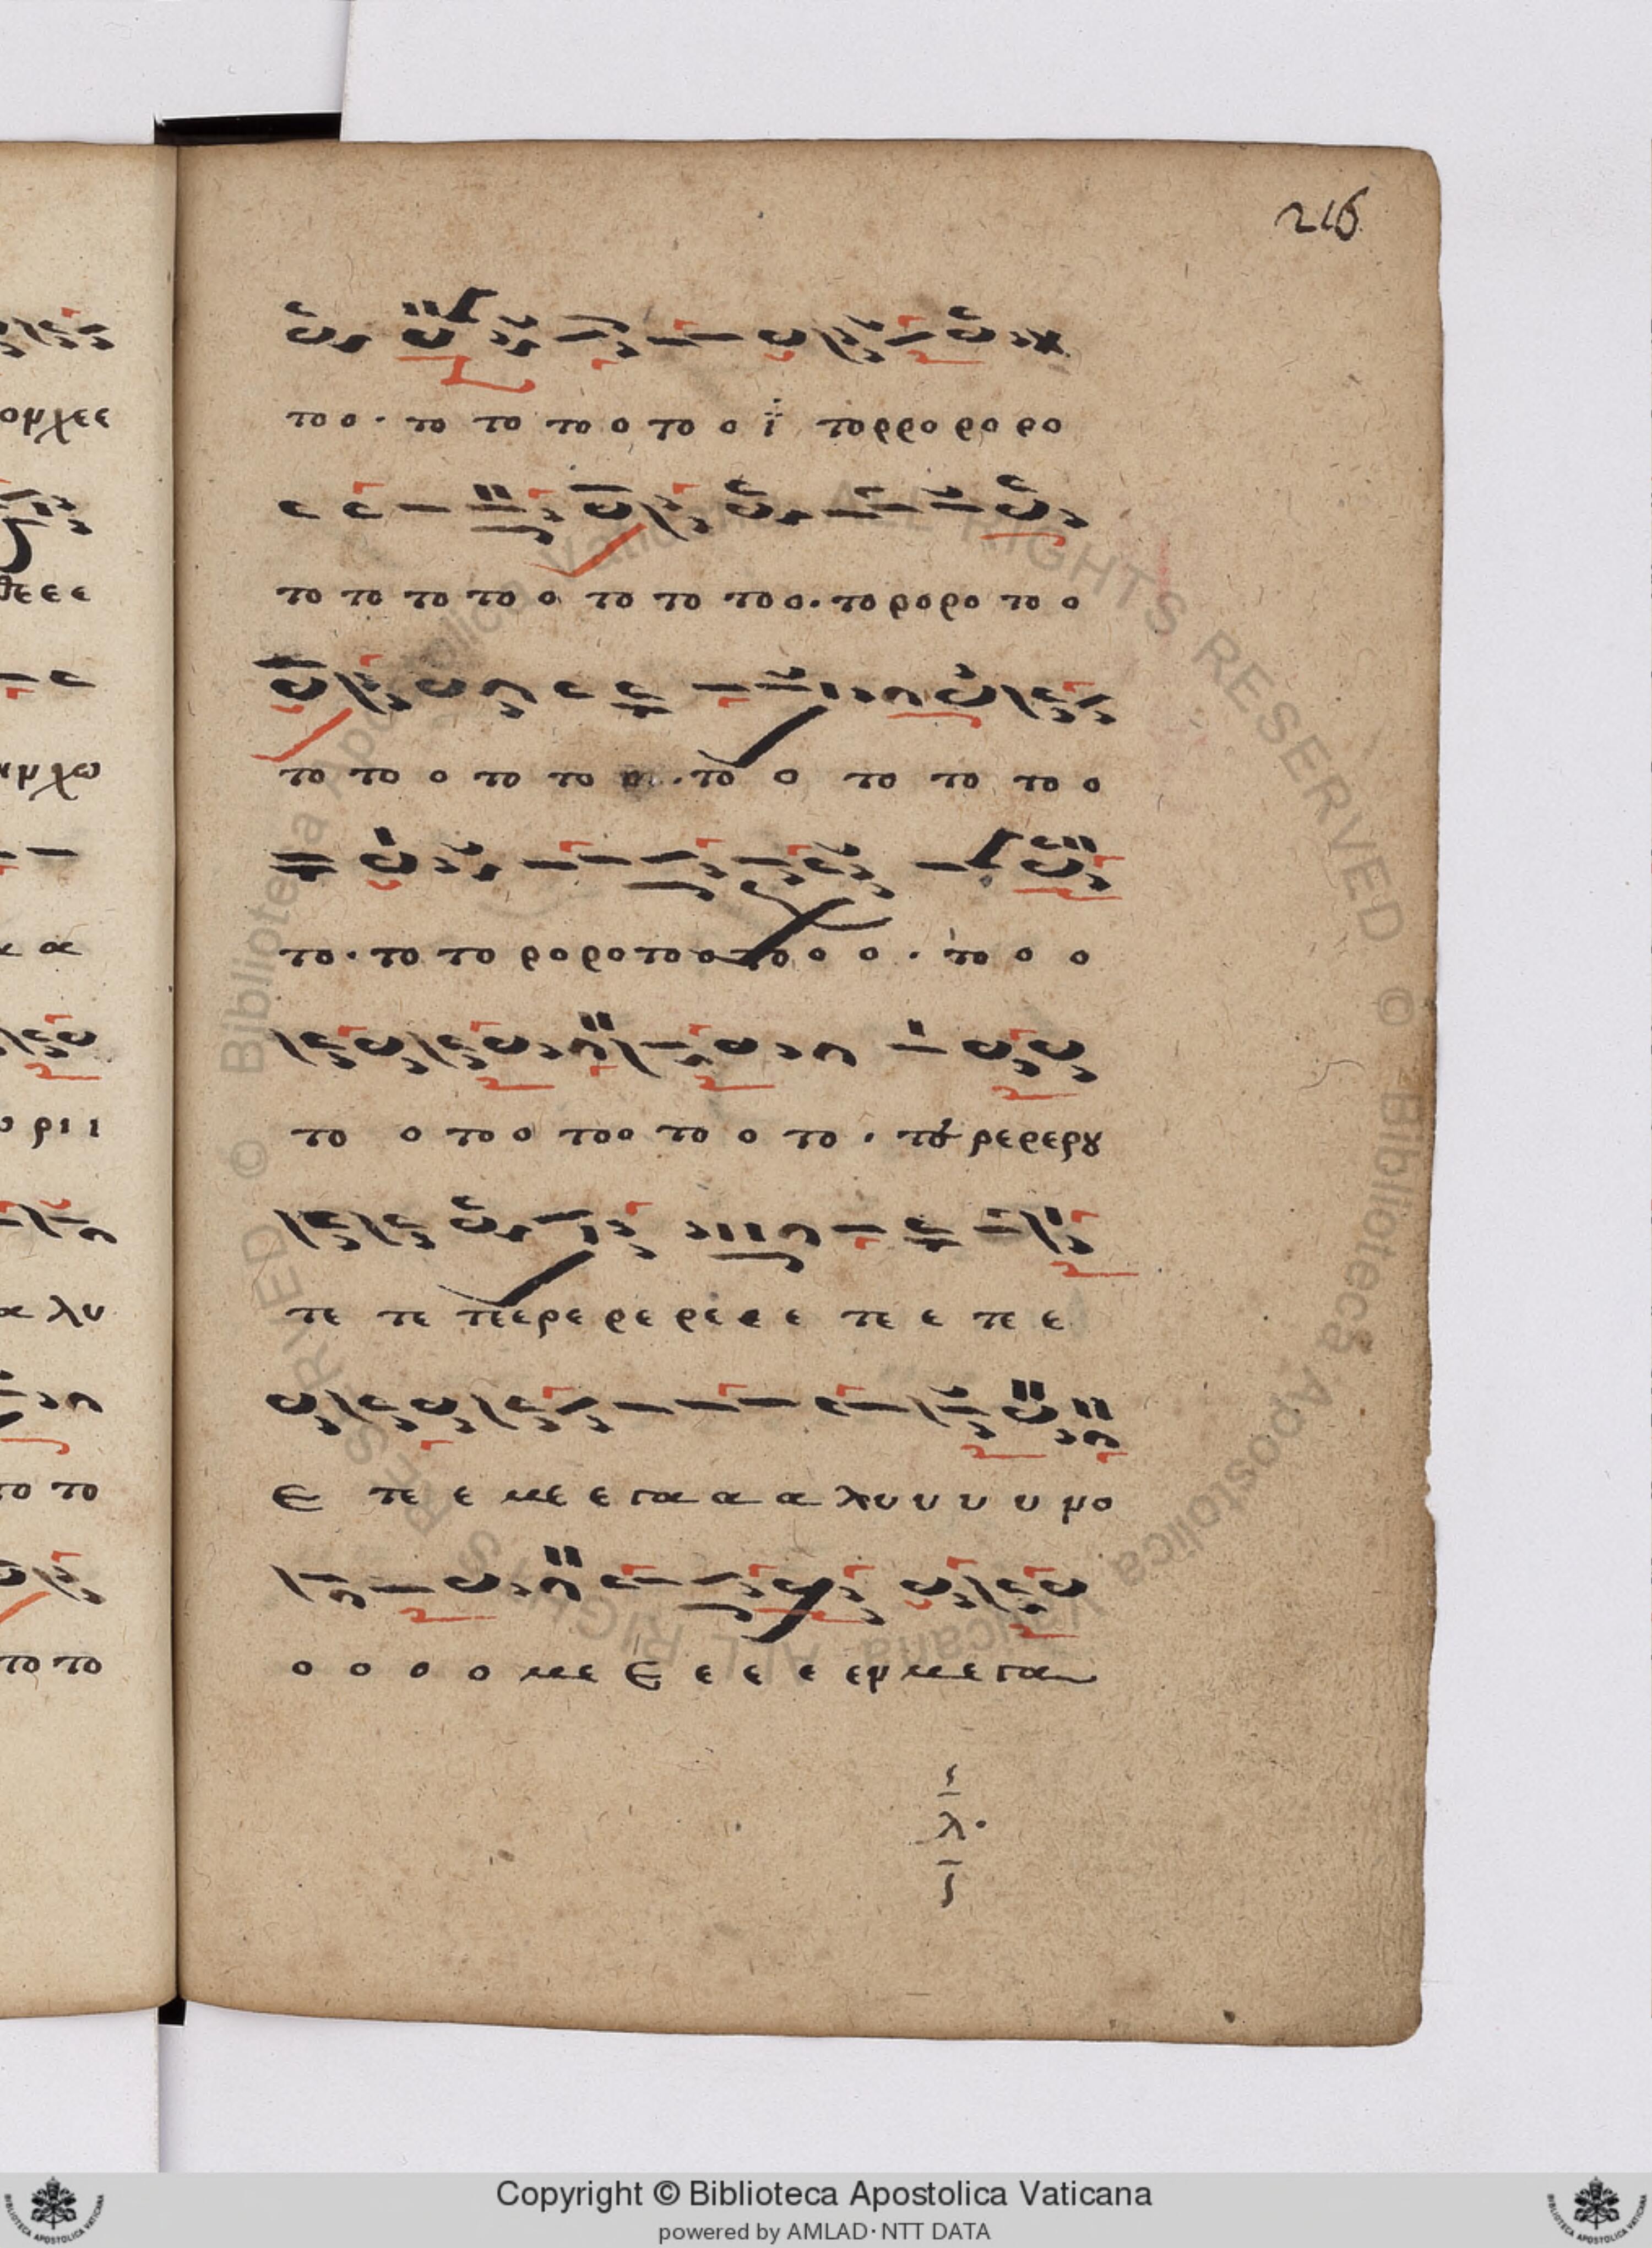 216
το ο · το το το ο το ο ϊ το ρρο ρο ρο
το το το το ο το το το ο · το ρο ρο το ο
το το ο το το · το ο το το το ο
το · το το ρο ρο το ο το ο ο · το ο ο
το ο το ο το ο το ο το · του ρε ρε ρου
πε πε πε ε ρε ρε ρε ε ε πε ε πε ε
ε πε ε με ε γα α α λυ υ υ υ μο
ο ο ο ο με ε ε ε ε ερ με γα
λ ·
ομχεε
θεεε
μχω
α
ριι
α λυ
το το
το το
Copyright © Biblioteca Apostolica Vaticana
powered by AMLAD · NTT DATA
© Biblioteca Apostolica Vaticana ALL RIGHTS RESERVED